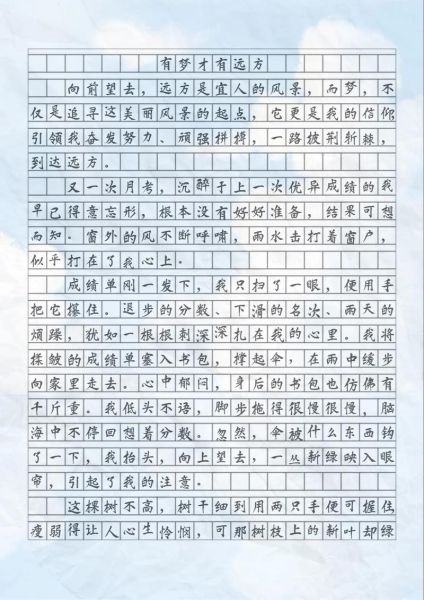 有梦才有远方
向前望去，远方是宜人的风景，而梦，不
仅是追寻这美丽风景的起点，它更是我的信仰
引领我奋发努力、顽强拼搏，一路披荆斩棘，
到达远方。
又一次月考，沉醉于上一次优异成绩的我
早已得意忘形，根本没有好好准备，结果可想
而知。窗外的风不断呼啸，雨水击打着窗户，
似乎打在了我心上。
成绩单刚一发下，我只扫了一眼，便用手
把它捂住。退步的分数、下滑的名次、雨天的
烦躁，犹如一根根刺深深扎在我的心里。我将
揉皱的成绩单塞入书包，撑起伞，在雨中缓步
向家里走去。心中郁闷，身后的书包也仿佛有
千斤重。我低头不语，脚步拖得很慢很慢，脑
海中不停回想着分数。忽然，伞被什么东西钩
了一下，我抬头，向上望去，一丛新绿映入眼
帘，引起了我的注意。
这棵树不高，树干细到用两只手便可握住，
瘦弱得让人心生怜悯，可那树枝上的新叶却绿